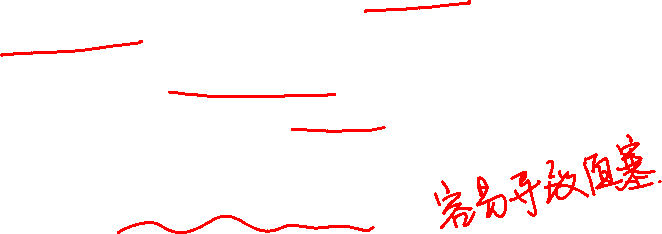 容易导致阻塞.